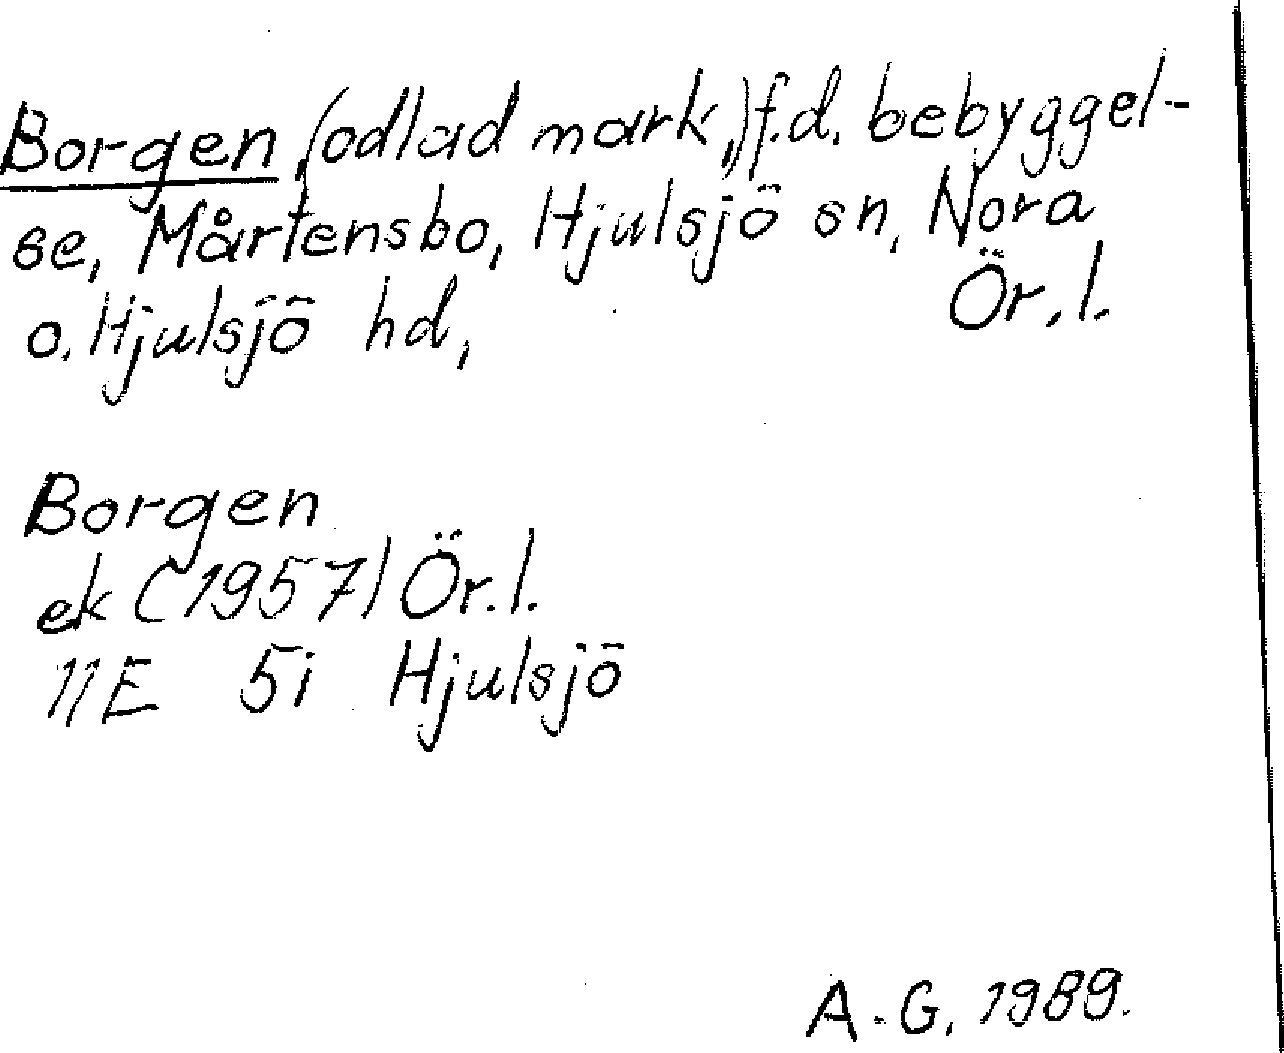 Borgen, (odlad mark,) f.d. bebyggel-
se, Mårtensbo, Hjulsjö sn, Nora
o. Hjulsjö hd, Ör. l.
Borgen
ek (1957) Ör. l.
11E 5i Hjulsjö
A. G. 1989.